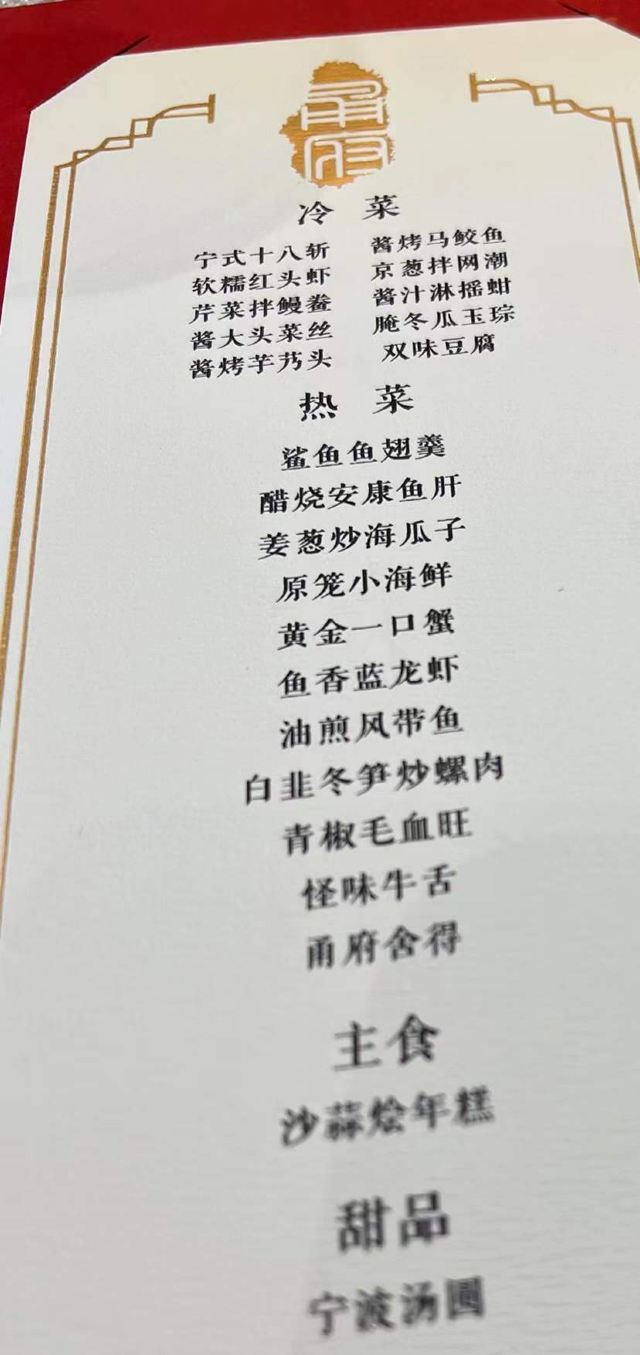 甬府
冷菜
宁式十八斩 酱烤马鲛鱼
软糯红头虾 京葱拌网潮
芹菜拌鳗鲞 酱汁淋摇蚶
酱大头菜丝 腌冬瓜玉琮
酱烤芋艿头 双味豆腐
热菜
鲨鱼鱼翅羹
醋烧安康鱼肝
姜葱炒海瓜子
原笼小海鲜
黄金一口蟹
鱼香蓝龙虾
油煎风带鱼
白韭冬笋炒螺肉
青椒毛血旺
怪味牛舌
甬府舍得
主食
沙蒜烩年糕
甜品
宁波汤圆